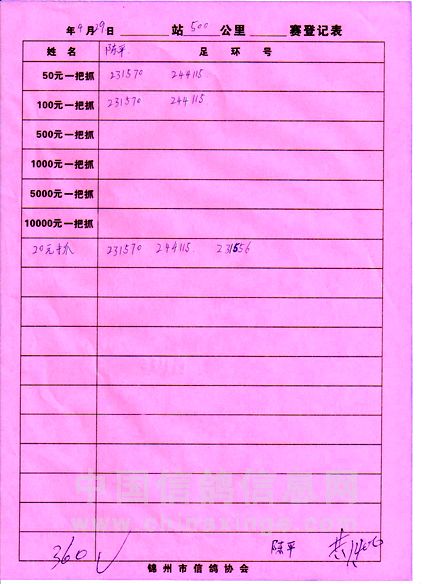 年 9 月 29 日 站 500 公里 赛登记表
姓名 陈平 足环号
50元一把抓 231570 244115
100元一把抓 231570 244115
500元一把抓
1000元一把抓
5000元一把抓
10000元一把抓
20元 231570 244115 231556
中国信鸽信息网
www.chinaxinge.com
360 陈平
锦州市信鸽协会